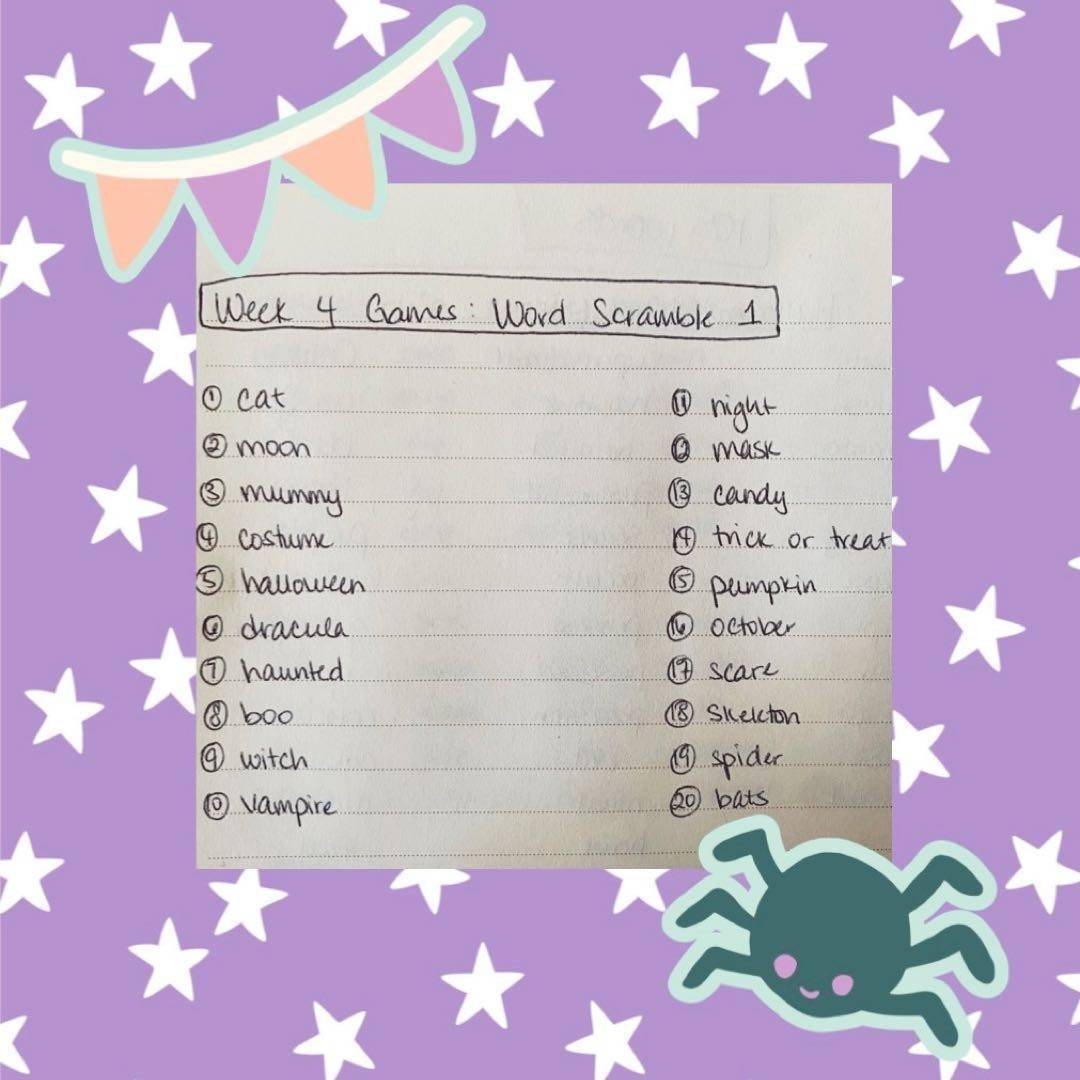 Week 4 Games: Word Scramble 1
① cat
② moon
③ mummy
④ costume
⑤ halloween
⑥ dracula
⑦ haunted
⑧ boo
⑨ witch
⑩ vampire
⑪ night
⑫ mask
⑬ candy
⑭ trick or treat
⑮ pumpkin
⑯ october
⑰ scare
⑱ skeleton
⑲ spider
⑳ bats